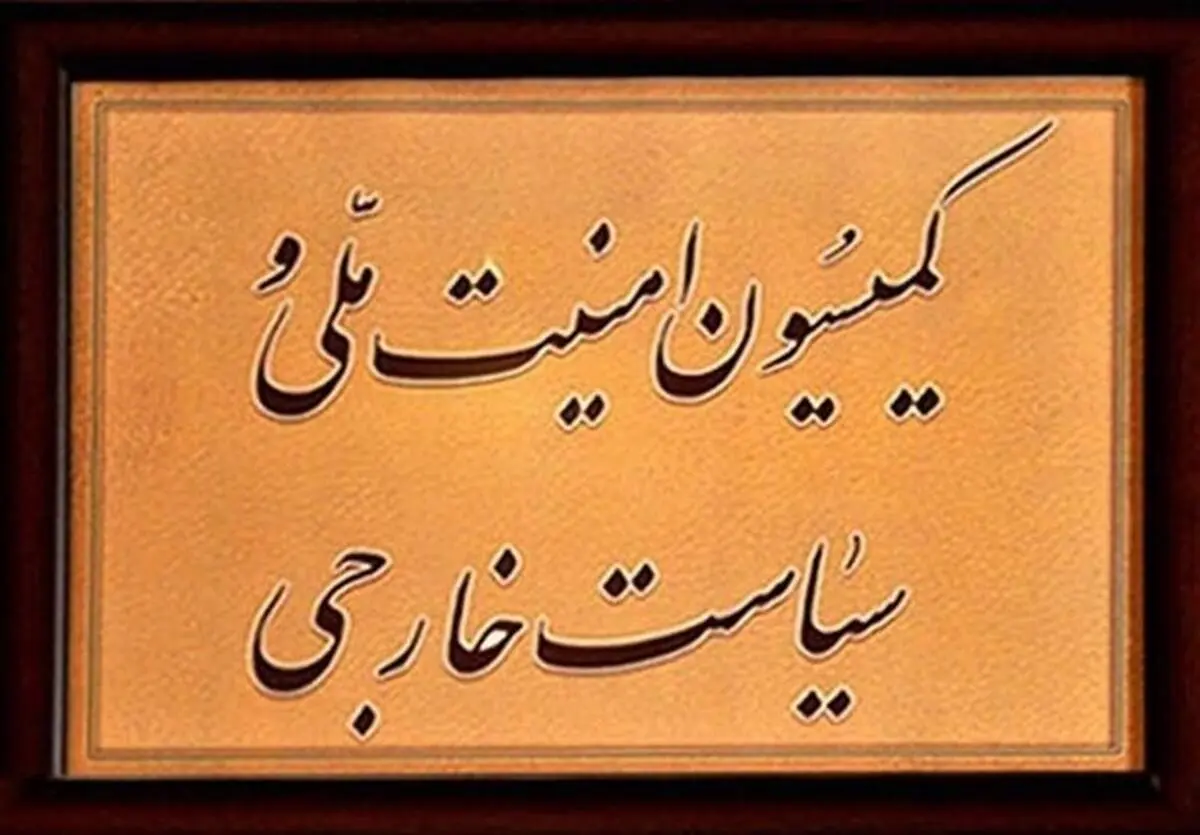 کمیسُیون امنیت ملّی و
سیُاست خارجی